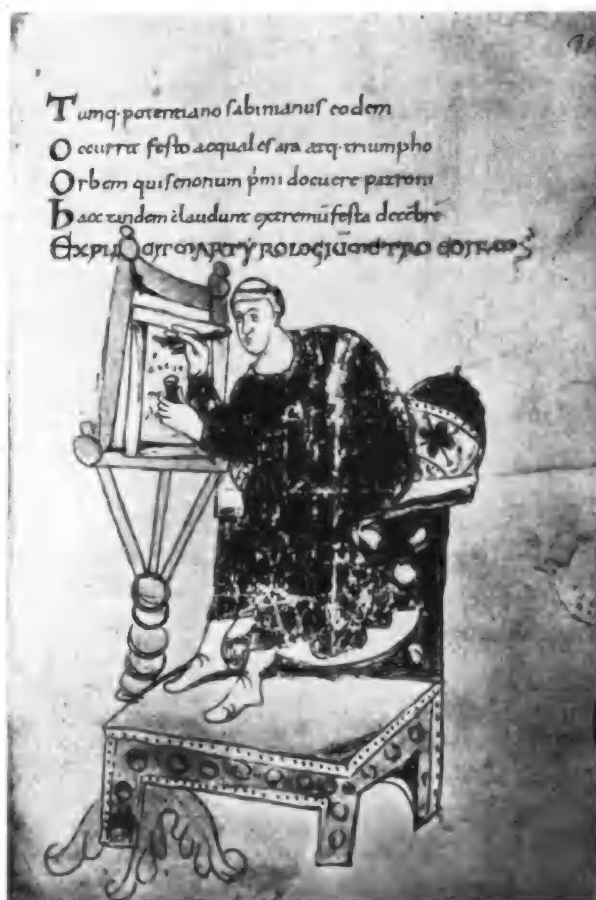 Tumq. potentiano sabinianus eodem
Occurrit festo aequalis ara atq. triumpho
Orbem qui senonum p̄mi docuere patroni
haec tandem claudunt extremū festa decēbrē
EXPLICIT MARTYROLOGIŪ